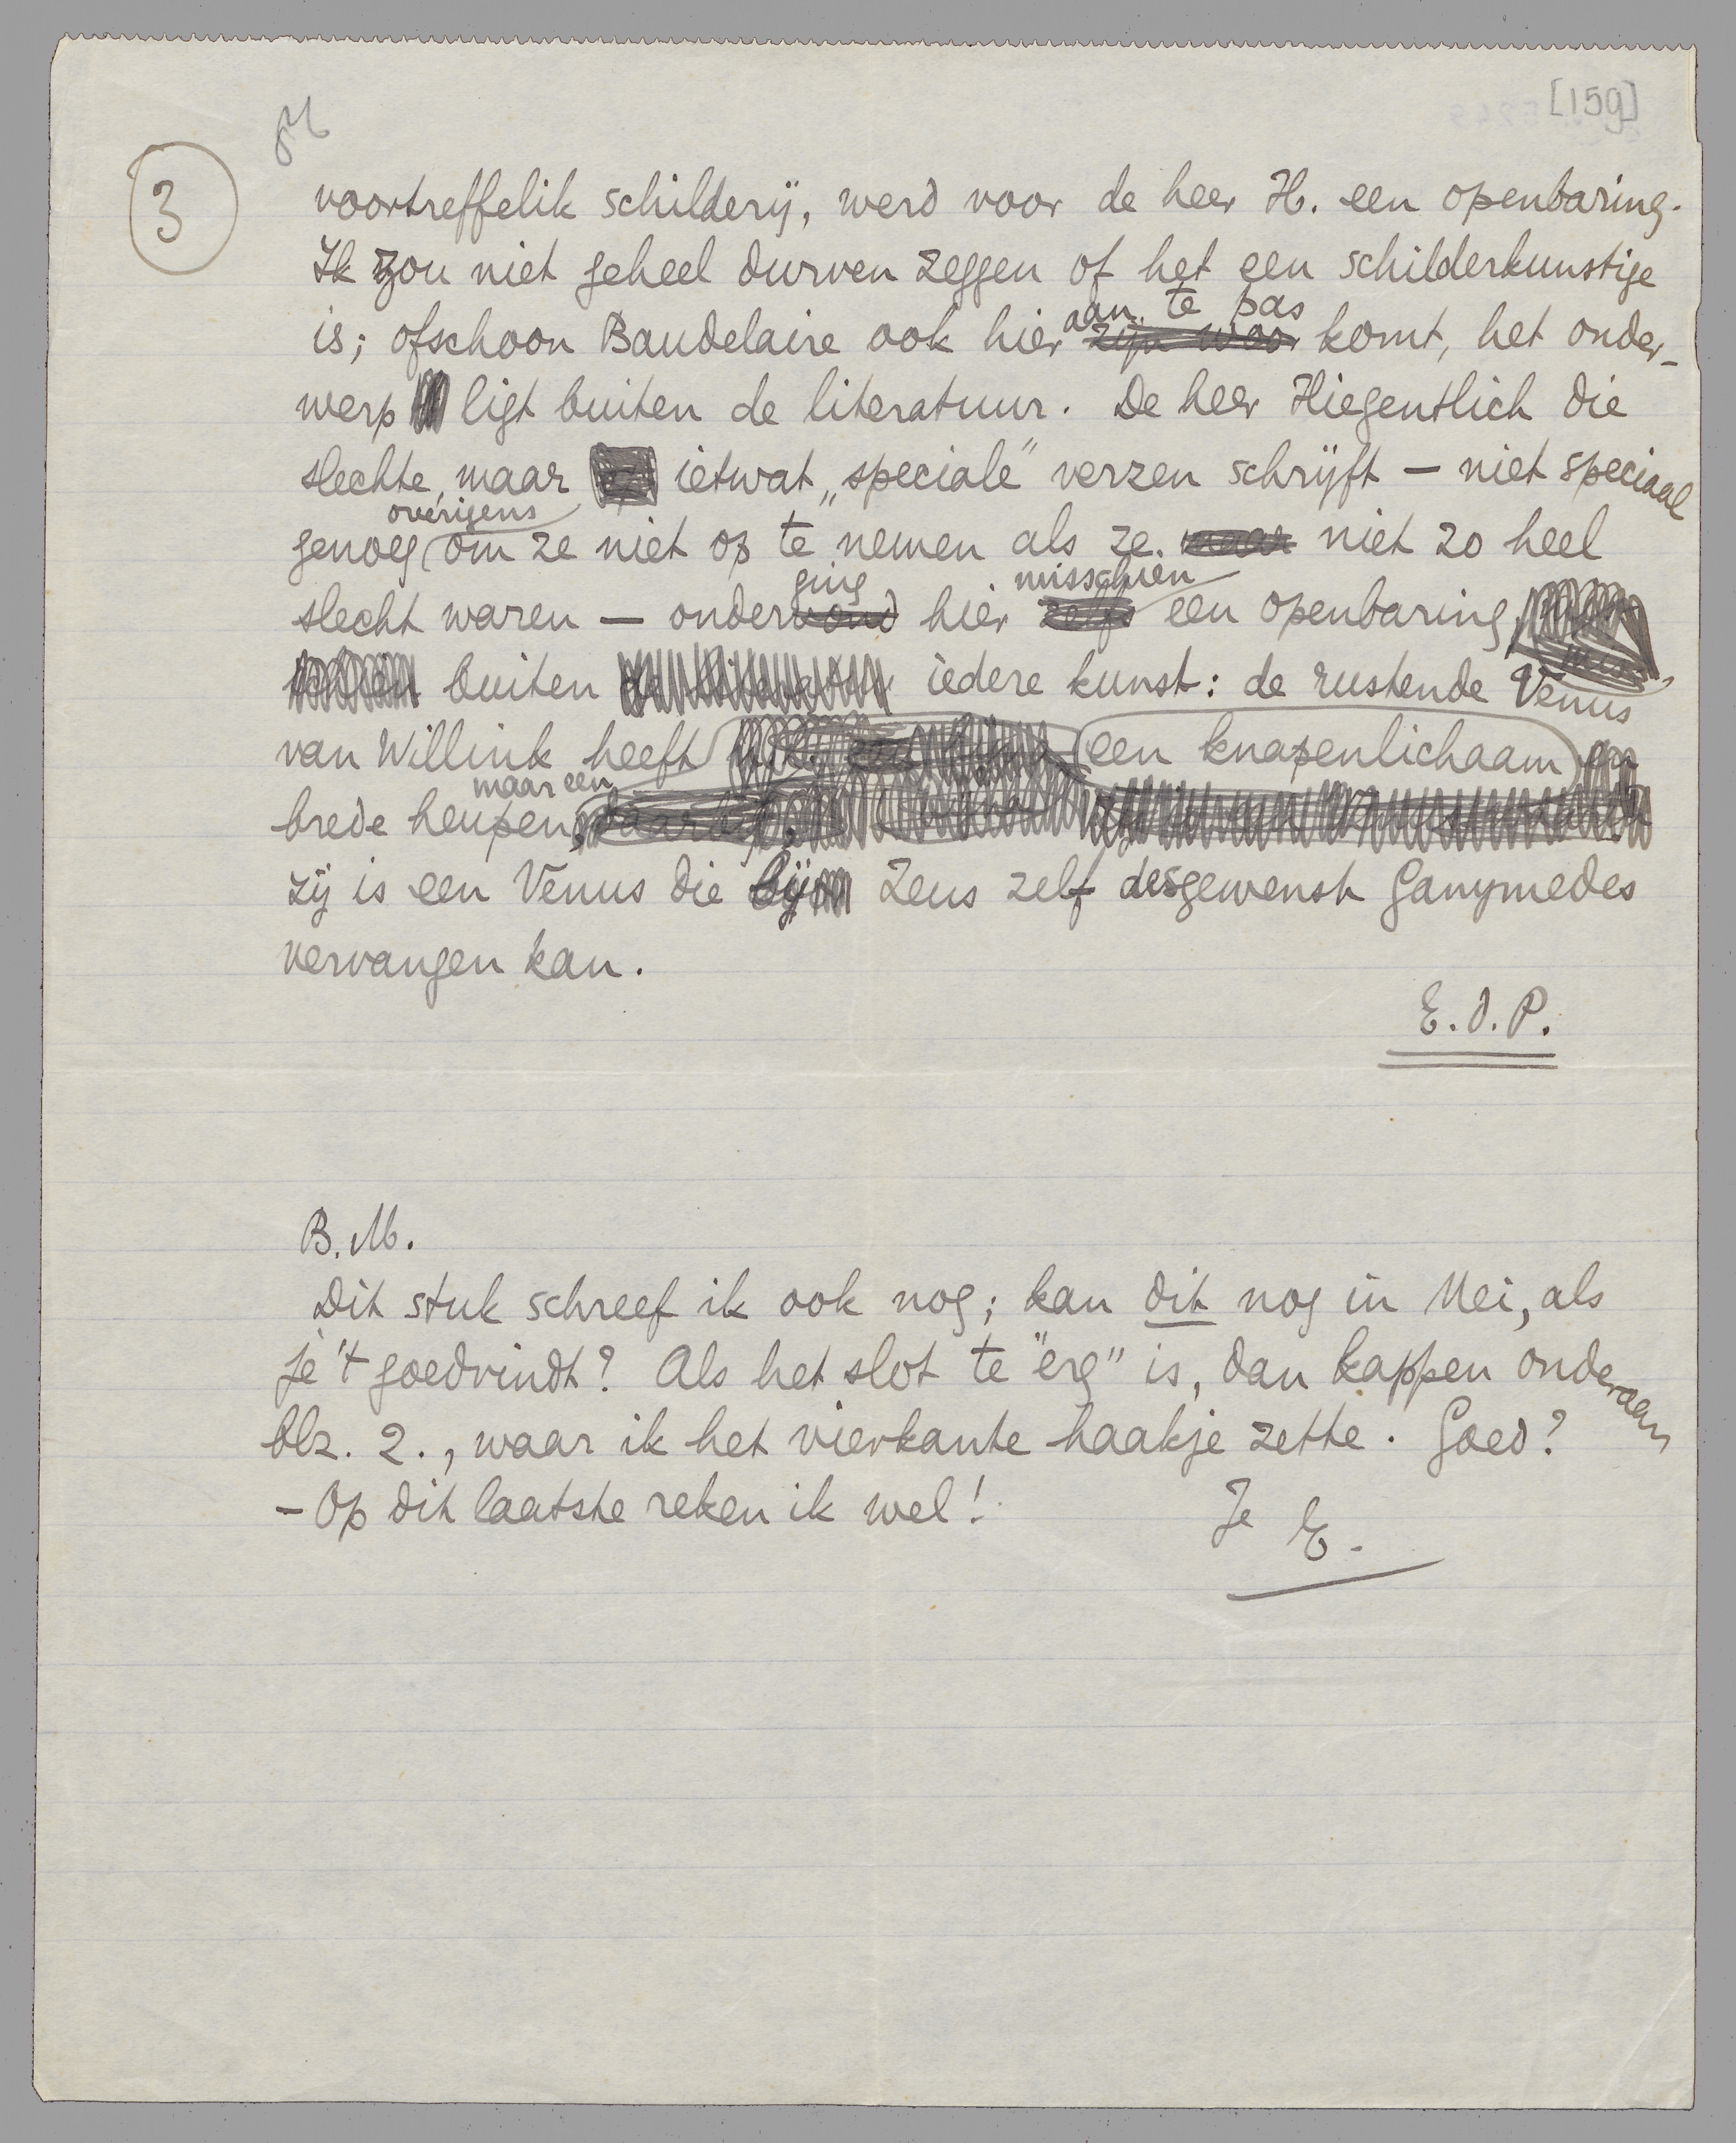 [159]
3
voortreffelik schilderij, werd voor de heer H. een openbaring.
Ik zou niet geheel durven zeggen of het een schilderkunstige
is; ofschoon Baudelaire ook hier aan te pas komt, het onder-
werp ligt buiten de literatuur. De heer Hiegentlich die
slechte, maar ietwat „speciale" verzen schrijft — niet speciaal
genoeg overigens om ze niet op te nemen als ze niet zo heel
slecht waren — onderging hier misschien een openbaring,
buiten iedere kunst: de rustende Venus
van Willink heeft een knapenlichaam en
brede heupen, maar een
zij is een Venus die Zeus zelf desgewenst Ganymedes
vervangen kan.
E.d.P.
B.M.
Dit stuk schreef ik ook nog; kan dit nog in Mei, als
je 't goedvindt? Als het slot te "erg" is, dan kappen onderaan
blz. 2., waar ik het vierkante haakje zette. Goed?
– Op dit laatste reken ik wel!
Je E.